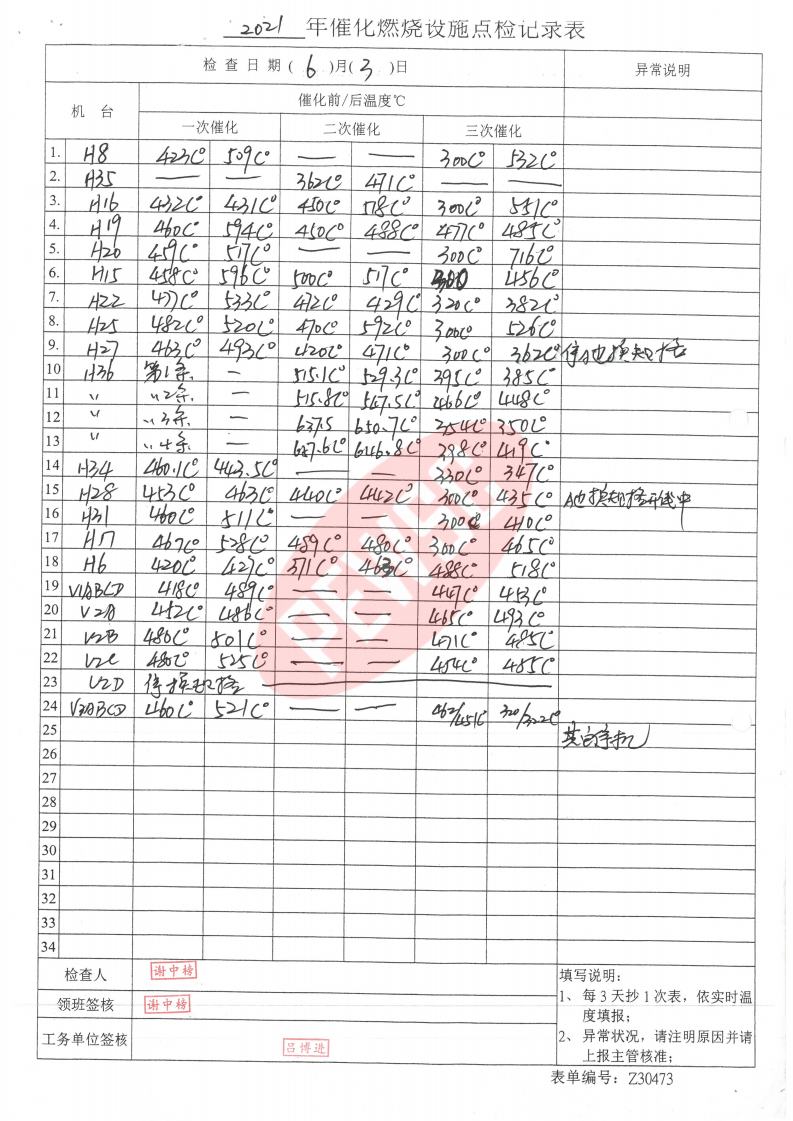 2021 年催化燃烧设施点检记录表
检查日期( 6 )月( 3 )日 异常说明
机 台 催化前/后温度℃
一次催化 二次催化 三次催化
1. H8 423C° 509C° — — 300C° 532C°
2. H35 — — 362C° 471C° — —
3. H16 432C° 431C° 450C° 518C° 300C° 551C°
4. H19 460C° 594C° 450C° 488C° 477C° 485C°
5. H20 459C° 517C° — — 300C° 716C°
6. H15 458C° 596C° 500C° 517C° 300 456C°
7. H22 477C° 533C° 472C° 429C° 320C° 382C°
8. H25 482C° 520C° 470C° 592C° 300C° 526C°
9. H27 463C° 493C° 420C° 471C° 300C° 362C° 停
10 H36 第1条 — 515.1C° 529.3C° 395C° 385C°
11 〃 〃2条 — 515.8C° 547.5C° 466C° 448C°
12 〃 〃3条 — 637.5 650.7C° 354C° 350C°
13 〃 〃4条 — 687.6C° 646.8C° 398C° 419C°
14 H34 460.1C° 443.5C° — — 330C° 347C°
15 H28 453C° 463C° 440C° 442C° 300C° 435C°
16 H31 460C° 511C° — — 300C° 410C°
17 H17 467C° 528C° 489C° 480C° 300C° 465C°
18 H6 420C° 427C° 371C° 463C° 488C° 518C°
19 V1ABCD 418C° 489C° — — 447C° 453C°
20 V2A 452C° 486C° — — 465C° 493C°
21 V2B 480C° 501C° — — 471C° 485C°
22 V2C 480C° 525C° — — 454C° 485C°
23 V2D 停
24 V3ABCD 460C° 521C° — — 462/451C° 320/322C°
25 其它停机
26
27
28
29
30
31
32
33
34
PEVISE
检查人 谢中榜
领班签核 谢中榜
工务单位签核 吕博进
填写说明:
1、每3天抄1次表，依实时温
度填报；
2、异常状况，请注明原因并请
上报主管核准；
表单编号：Z30473